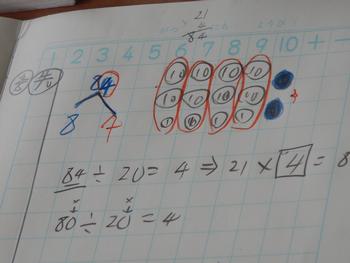 21
4
84
1 2 3 4 5 6 7 8 9 10 + −
84
8 4
10 10 10 10
10 10 10 10
1 1 1 1
84 ÷ 20 = 4 ⇒ 21 × 4 = 8
80 ÷ 20 = 4